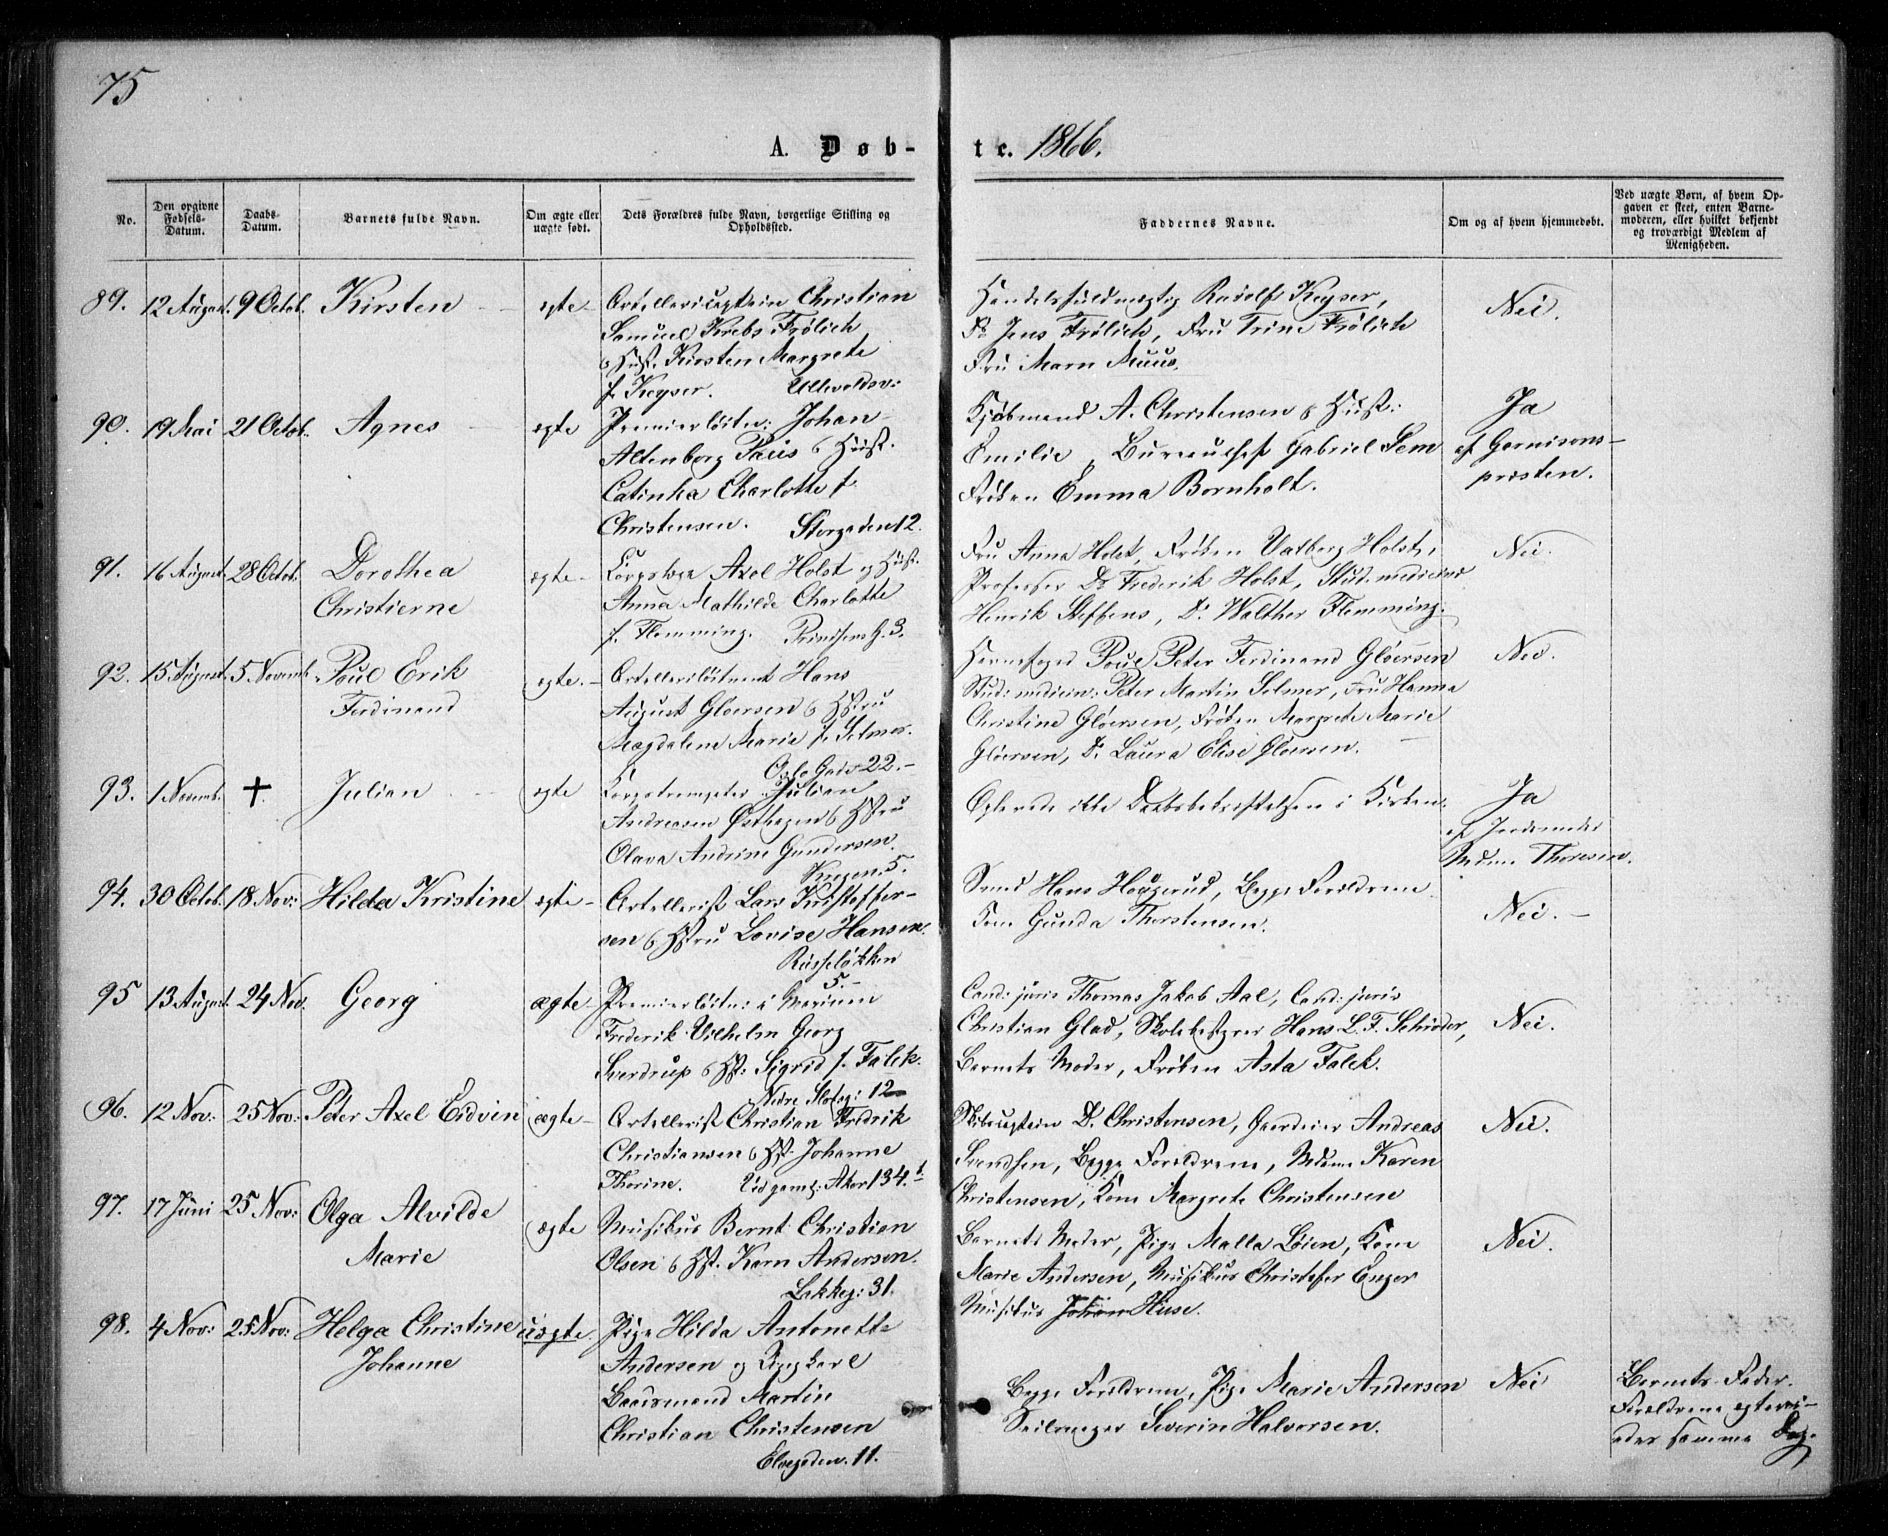 75
A. Døb-
te. 1866.
No.
Den opgivne Fødsels-Datum.
Daabs-Datum.
Barnets fulde Navn.
Om ægte eller uægte født.
Dets Forældres fulde Navn, borgerlige Stilling og Opholdssted.
Faddernes Navne.
Om og af hvem hjemmedøbt.
Ved uægte Børn, af hvem Op-
gaven er skeet, enten Barne-
moderen, eller hvilket bekjendt
og troværdigt Medlem af
Menigheden.
89. 12 August. 9 Octob. Kirsten ægte
Artillericaptein Christian
Samuel Krebs Frölich
& Hust. Kirsten Margrete
f. Keyser. Ullevoldsv:
Handelsfuldmægtig Rudolf Keyser,
Do Jens Frölich, Fru Trine Frölich
Fru Maren Muus.
Nei.
90. 19 Mai 21 Octob. Agnes ægte
Premierlöitn: Johan
Altenborg Paus & Hust.
Catinka Charlotte f.
Christensen. Storgaden 12.
Kjöbmand A. Christensen & Hust:
Emilie, Bureauchef Gabriel Sem
Fröken Emma Bornholt.
Ja
af Garnisons-
præsten.
91. 16 August. 28 Octob. Dorothea
Christierne
ægte
Korpslæge Axel Holst og Hust.
Anna Mathilde Charlotte
f. Flemming. Prindsens G. 3.
Fru Anna Holst, Fröken Valborg Holst,
Professor Dr Frederik Holst, Stud. medicin
Henrik Steffens, Do Walther Flemming.
Nei.
92. 15 August. 5 Novemb. Poul Erik
Ferdinand
ægte.
Artillerilöitnant Hans
August Glöersen & Hstru
Magdalene Marie f. Selmer.
Oslo Gade 22.
Poul Peter Ferdinand Glöersen
Stud: medicin: Peter Martin Selmer, Fru Hanna
Christine Glöersen, Fröken Margrete Marie
Glöersen, Do Laura Elise Glöersen.
Nei.
93. 1 Novemb. + Julian ægte
Korpstrompeter Julian
Andreasen Østhagen & Hstru
Olava Andrine Gundersen.
Krogen 5.
Oplevede ikke Daabsbekræftelsen i Kirken.
Ja
af Jordemoder
Mdme Thoresen.
94. 30 Octob. 18 Nov: Hilda Kristine ægte
Artillerist Lars Kristoffer-
sen & Hstru Lovise Hansen.
Russelökken
5.
Svend Hans Haugerud, Begge Forældrene
Kone Gunda Thorstensen.
Nei.
95 13 August. 24 Nov. Georg ægte
Premierlöitn: i Marinen
Frederik Vilhelm Georg
Sverdrup & Hst: Sigrid f. Falck.
Nedre Slotsg: 12
Cand: juris Thomas Jakob Aal, Cand: juris
Christian Glad, Skolebestyrer Hans L. F. Schröder,
Barnets Moder, Fröken Asta Falck.
Nei.
96. 12 Nov: 25 Nov: Peter Axel Edvin ægte
Artillerist Christian Fredrik
Christiansen & Hst. Johanne
Thorine. Akers 134.
Skibscaptein D. Christensen, Gaardeier Andreas
Svendsen, Begge Forældrene, Mdme Karen
Christensen, Kone Margrete Christensen
Nei.
97. 17 Juni 25 Nov: Olga Alvilde
Marie
ægte
Musikus Bernt Christian
Olsen & Hst. Karn Andersen.
Lakkeg: 31.
Barnets Moder, Pige Malla Löien, Kone
Marie Andersen, Musikus Christofer Enger
Musikus Johan Huse.
Nei.
98. 4 Nov: 25 Nov: Helga Christine
Johanne
uægte.
Pige Hilda Antonette
Andersen og Ungkarl
Martin
Christian Christensen
Elvegaden. 11.
Begge Forældrene, Pige Marie Andersen
Severin Halvorsen.
Nei
Barnets Fader.
Forældrene ægtevi-
edes samme Dag.